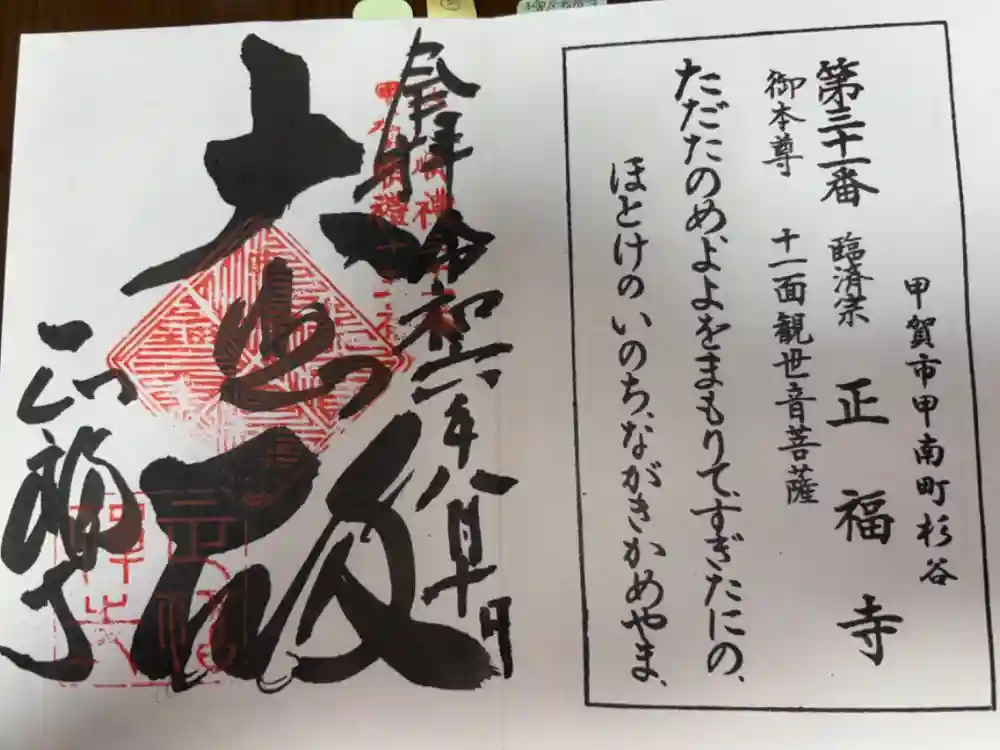 甲賀市甲南町杉谷
第三十一番 臨済宗 正福寺
御本尊 十一面観世音菩薩
ただたのめよよをまもりて、すぎたにの、
ほとけの いのち、ながきかめやま、
奉拝 令和六年八月十一日
大悲殿
正福寺